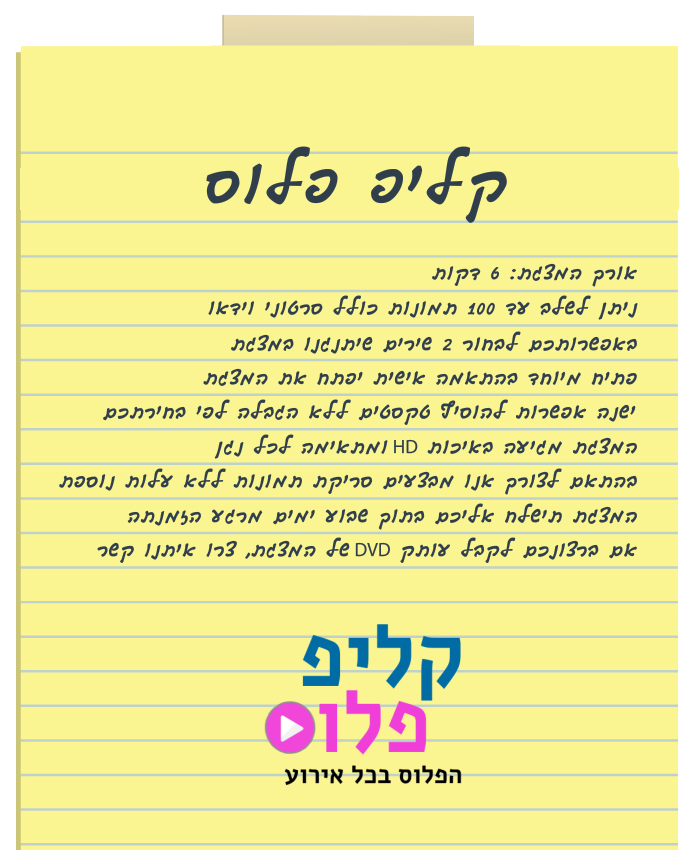 קליפ פלוס
אורך המצגת: 6 דקות
ניתן לשלב עד 100 תמונות כולל סרטוני וידאו
באפשרותכם לבחור 2 שירים שיתנגנו במצגת
פתיח מיוחד בהתאמה אישית יפתח את המצגת
ישנה אפשרות להוסיף טקסטים ללא הגבלה לפי בחירתכם
המצגת מגיעה באיכות HD ומתאימה לכל נגן
בהתאם לצורך אנו מבצעים סריקת תמונות ללא עלות נוספת
המצגת תישלח אליכם בתוך שבוע ימים מרגע הזמנתה
אם ברצונכם לקבל עותק DVD של המצגת, צרו איתנו קשר
קליפ
פלו
הפלוס בכל אירוע